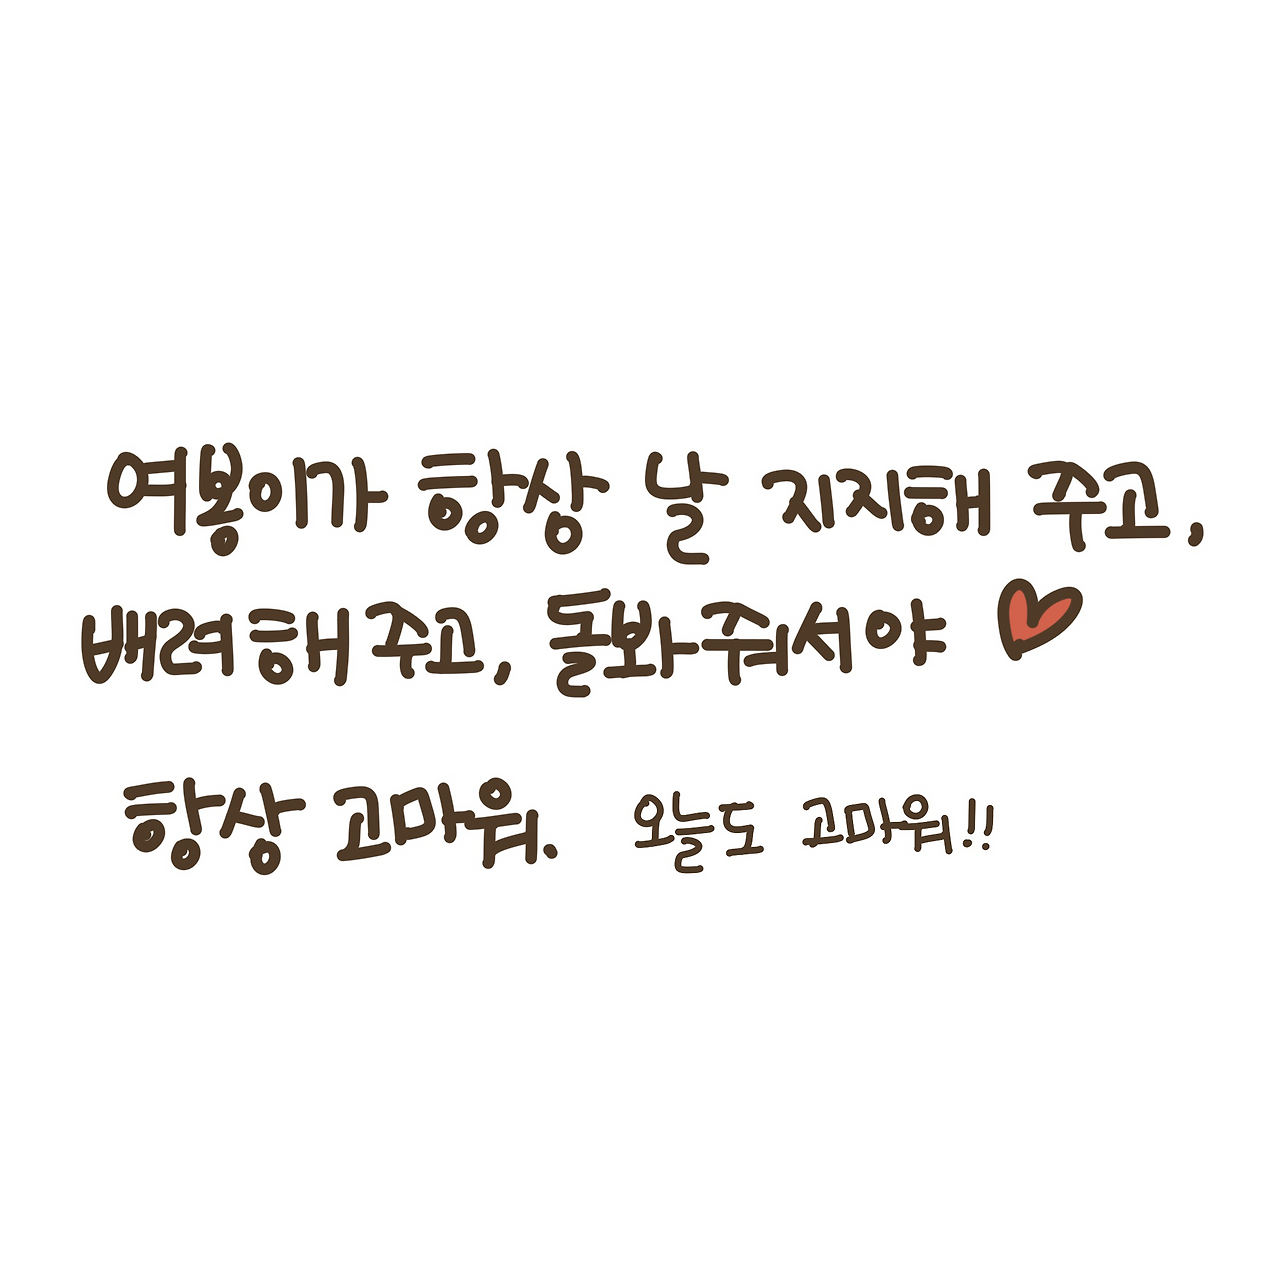 여봉이가 항상 날 지지해 주고,
배려해주고, 돌봐줘서야 ♥
항상 고마워. 오늘도 고마워!!